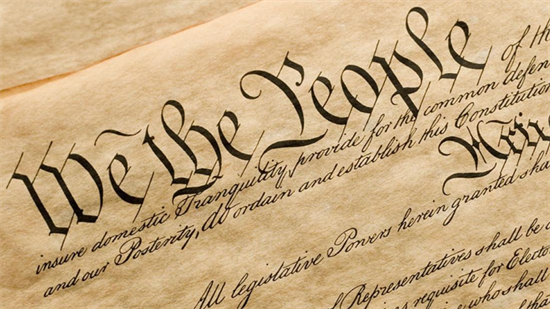 We the People of the
insure domestic Tranquility, provide for the common defen
and our Posterity, do ordain and establish this Constitution
All legislative Powers herein granted sha
of Representatives shall be
requisite for Elector
who shall